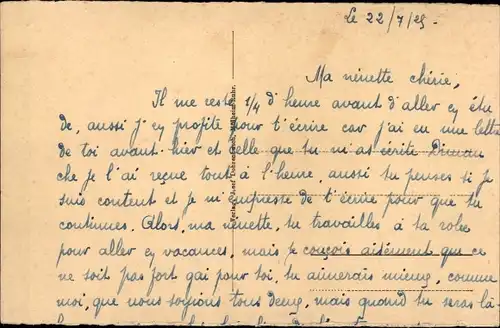 Le 22/7/25-
Ma nénette chérie,
Il me reste 1/4 d'heure avant d'aller en étu
de, aussi j'en profite pour t'écrire car j'ai eu une lettre
de toi avant-hier et celle que tu m'as écrite Diman
che je l'ai reçue tout à l'heure, aussi tu penses si je
suis content et je m'empresse de t'écrire pour que tu
continues. Alors, ma nénette, tu travailles à ta robe
pour aller en vacances, mais je conçois aisément que ce
ne soit pas fort gai pour toi, tu aimerais mieux, comme
moi, que nous soyions tous deux, mais quand tu seras là-